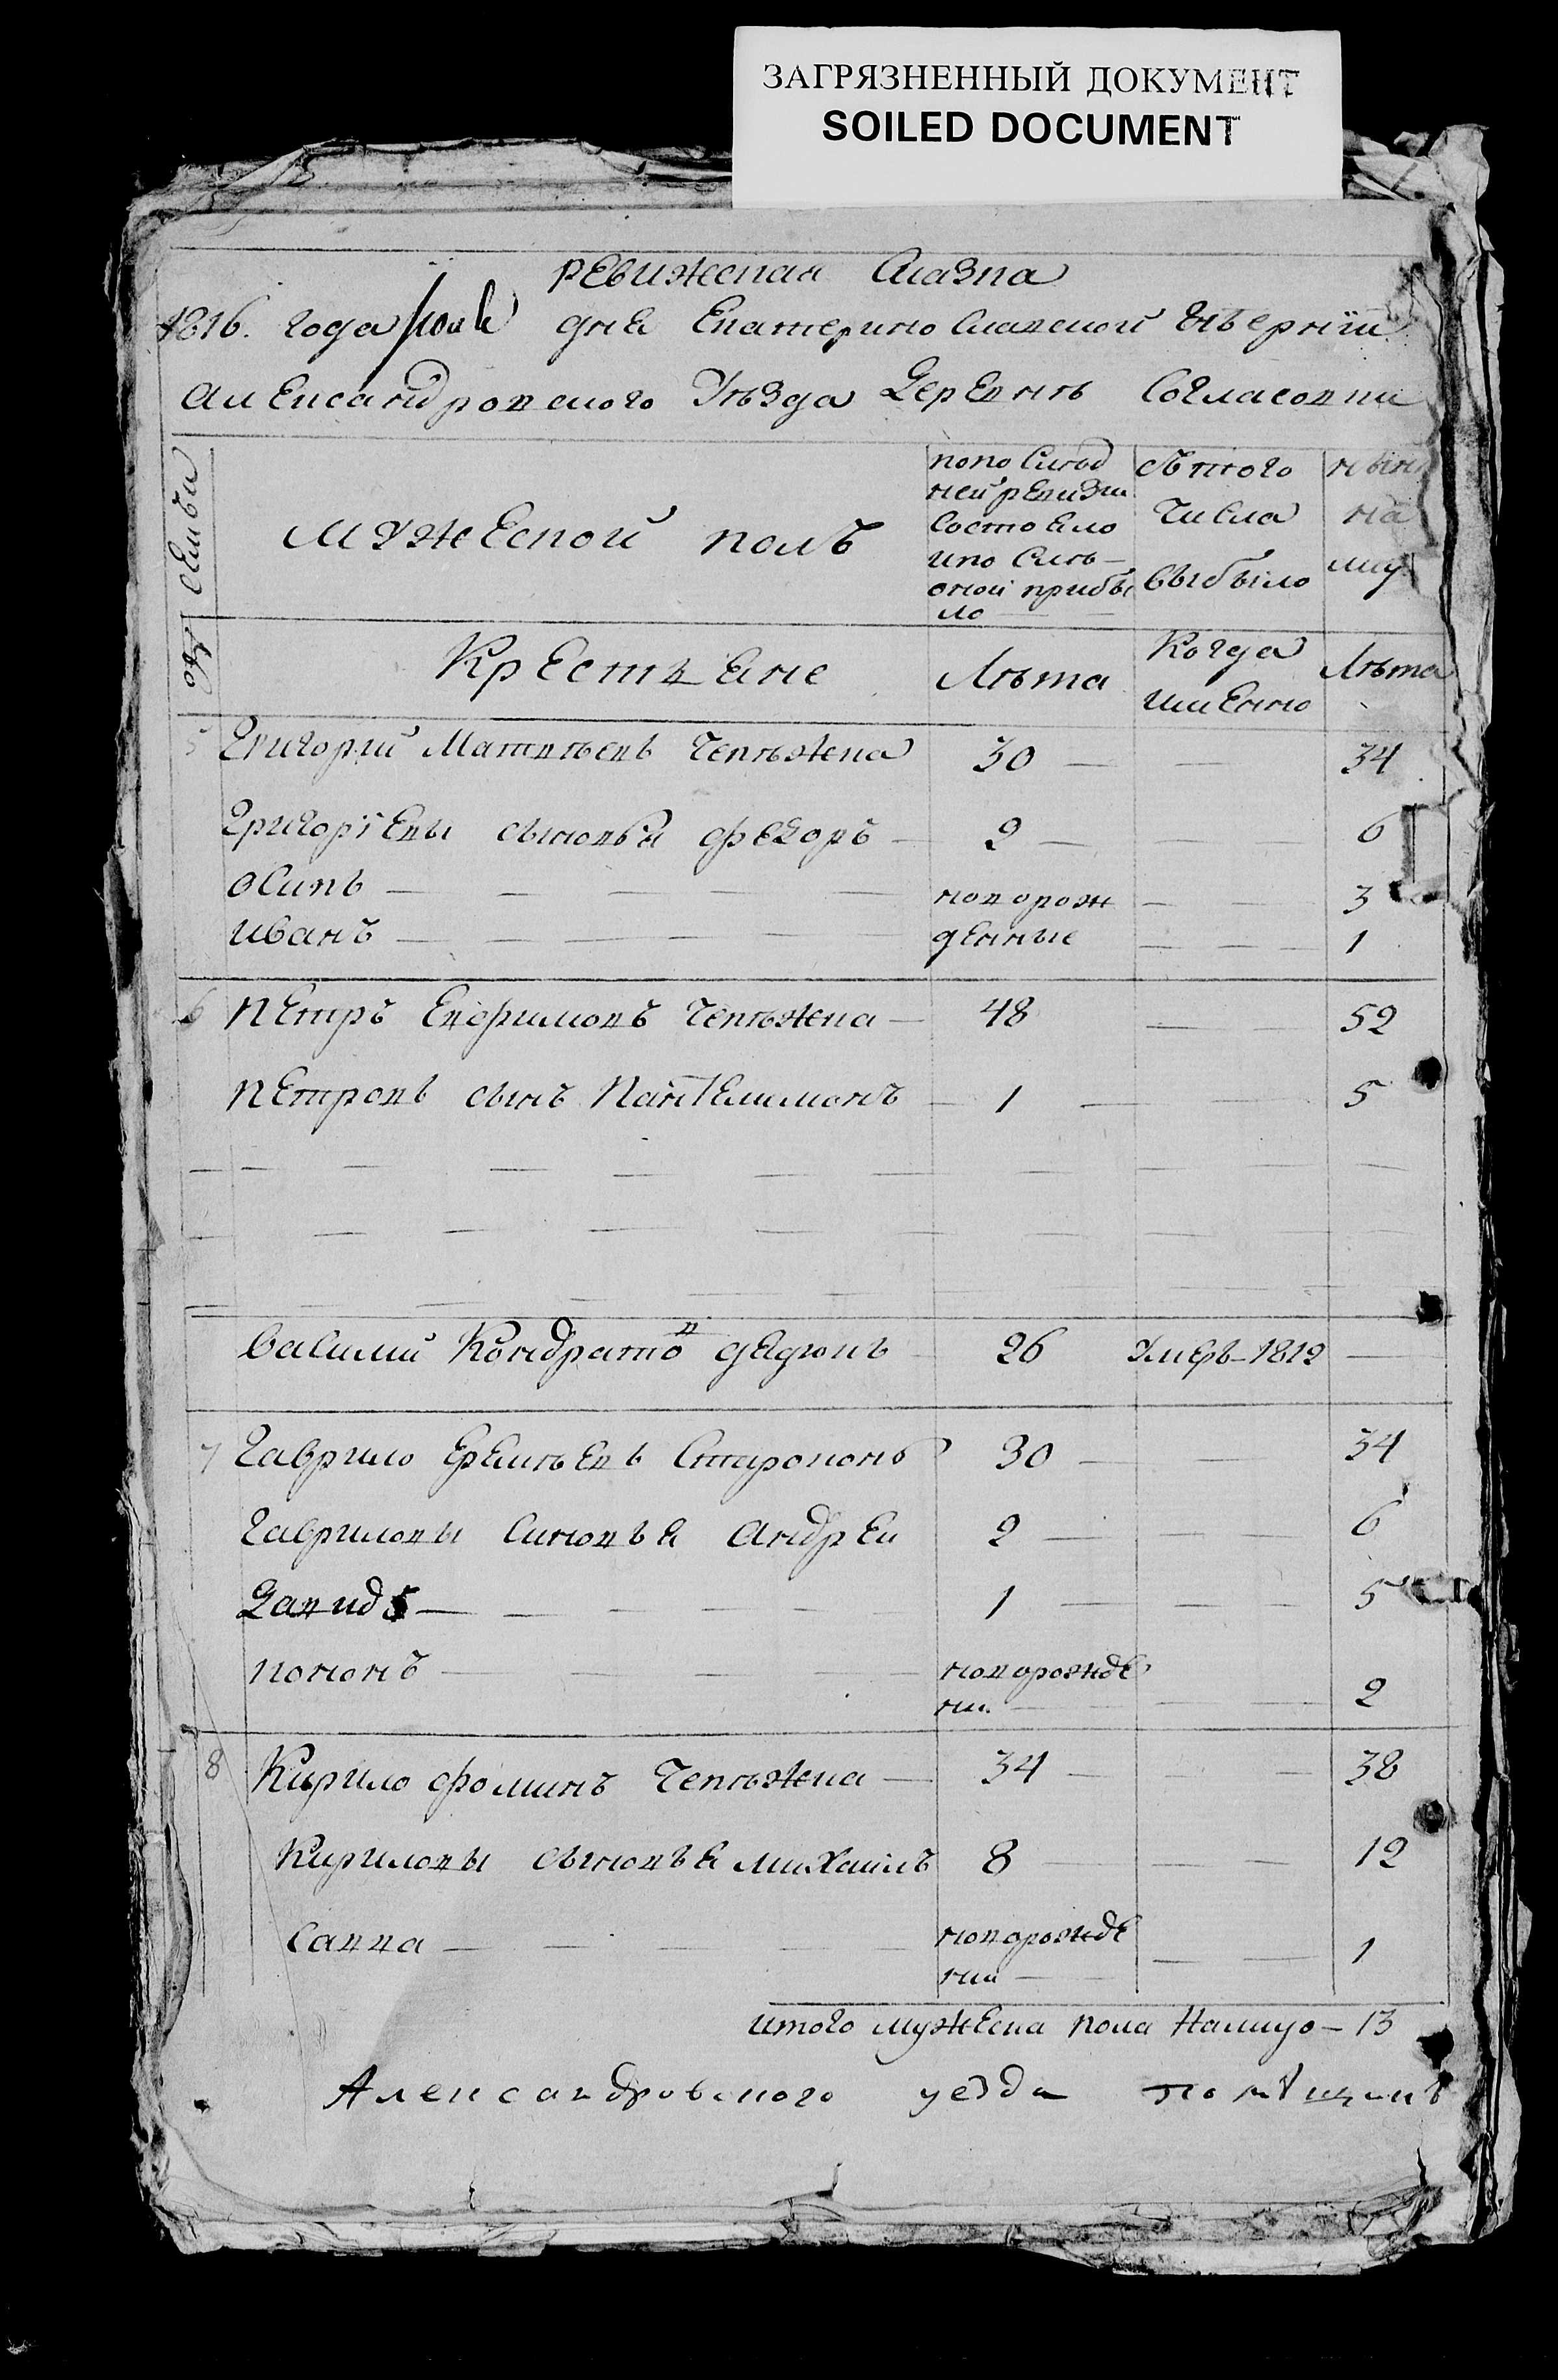 ЗАГРЯЗНЕННЫЙ ДОКУМЕНТ
SOILED DOCUMENT
Ревижская Сказка
1816. года дня Екатеринославской Губерніи
Александровского Уѣзда Деревнѣ Согласовки
№ семьи
Мужеской полъ
попослѣд
ней ревизіи
состояло
и по слѣ
оной прибы
ло
Съ того
числа
выбыло
нын
на
лиц
Крестяне
Лѣта
Когда
имянно
Лѣта
5 Григорій Матвѣевъ Чепѣжена 30 — — 34
Григоріевы сыновья Федоръ — 2 — — — 6
Осипъ — — — — — новорож — — — 3
Иванъ — — — — — — денные — — — 1
6 Петръ Евфимовъ Чепѣжека — 48 — — 52
Петровъ сынъ Пантелимонъ — 1 — — — 5
Василий Кондратов Дядюкъ 26 Умеръ — 1812 —
7 Гаврило Еремѣевъ 30 — — — 34
Гавриловы синовья Андрей 2 — — — 6
Давидъ — — — — — 1 — — — 5
Кононъ — — — — новорожде
ни — — — 2
8 Кирило Фоминъ Чепѣжека — 34 — — — 38
Кириловы сыновья Михаилъ 8 — — — 12
Савва — — — — — новорожде
ний — — — 1
Итого мужеска пола налицо — 13
Александровского уезда помѣщикъ